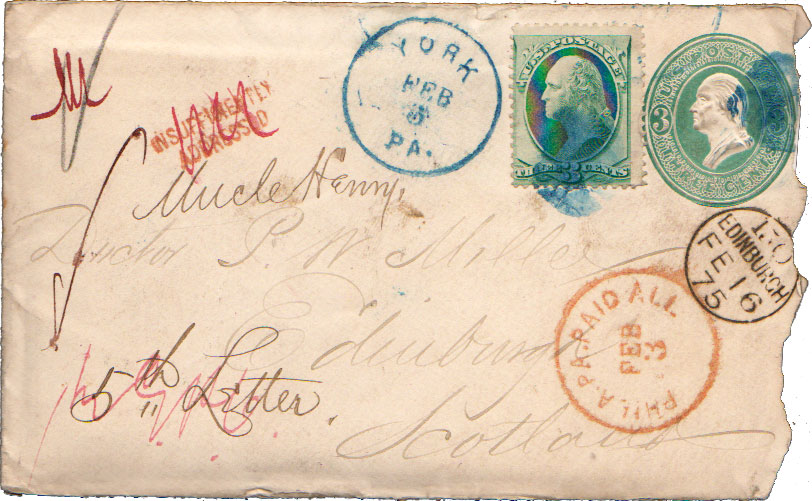 YORK
FEB
PA.
U.S. POSTAGE
THREE 3 CENTS
3
INSUFFICIENTLY
ADDRESSED
Uncle Henry,
Doctor P. W. Miller
Edinburgh
Scotland
5th Letter.
EDINBURGH
FE 16
75
PHILA. PA. PAID ALL
FEB
3